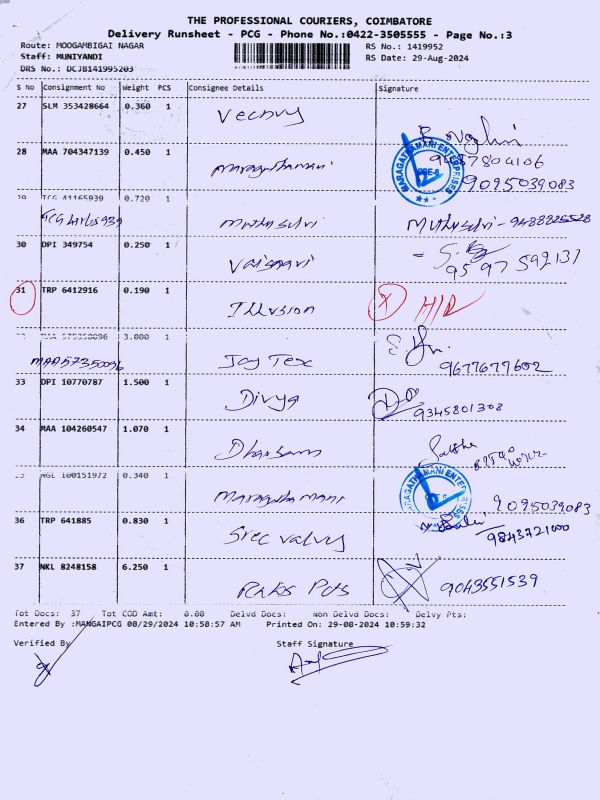 THE PROFESSIONAL COURIERS, COIMBATORE
Delivery Runsheet - PCG - Phone No.:0422-3505555 - Page No.:3
Route: MOOGAMBIGAI NAGAR RS No.: 1419952
Staff: MUNIYANDI RS Date: 29-Aug-2024
DRS No.: DCJB141995203
S No Consignment No Weight PCS Consignee Details Signature
27 SLM 353428664 0.360 1
28 MAA 704347139 0.450 1 Maragathamani
MARAGATHAMANI ENTERPRISES
9095039083
29 TCG 41165939 0.720 1
Muthuselvi Muthuselvi - 9488225528
30 DPI 349754 0.250 1 Vaisnavi
9597592131
31 TRP 6412916 0.190 1 Illusion X
MAA 575350096 3.000 1 Jay Tex
9677677602
33 DPI 10770787 1.500 1 Divya
9345801308
34 MAA 104260547 1.070 1
35 NGL 100151972 0.340 1 Maragathamani
MARAGATHAMANI ENTERPRISES
9095039083
36 TRP 641885 0.830 1 Sree valvs
9843721000
37 NKL 8248158 6.250 1
9043551539
Tot Docs: 37 Tot COD Amt: 0.00 Delvd Docs: Non Delvd Docs: Delvy Pts:
Entered By :MANGAIPCG 08/29/2024 10:58:57 AM Printed On: 29-08-2024 10:59:32
Verified By Staff Signature